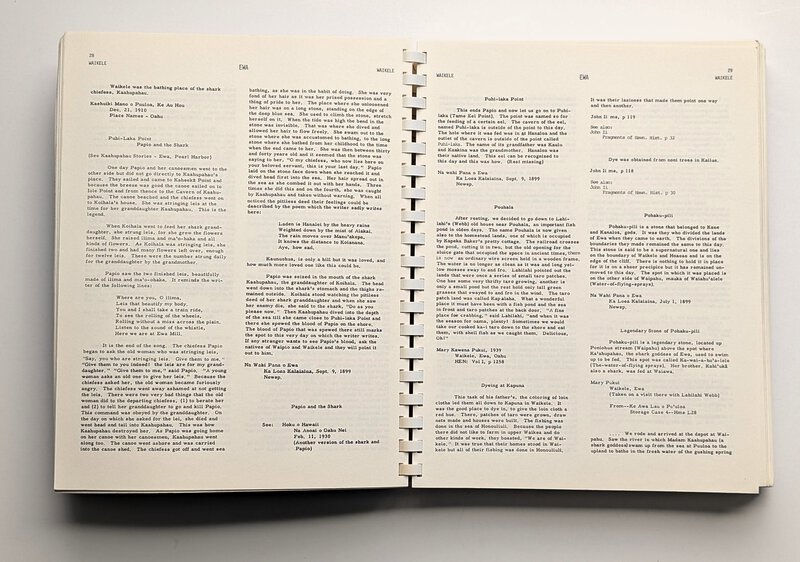 28
WAIKELE
EWA
WAIKELE
Waikele was the bathing place of the shark
chiefess, Kaahupahau.
Kashuiki Mano o Puuloa, Ke Au Hou
Dec. 21, 1910
Place Names - Oahu
Puhi-Laka Point
Papio and the Shark
(See Kaahupahau Stories - Ewa, Pearl Harbor)
One day Papio and her canoemen went to the
other side but did not go directly to Kaahupahau's
place. They sailed and came to Kabeekä Point and
because the breeze was good the canoe sailed on to
Isle Point and from thence to the Cavern of Kaahu-
pahau. The canoe beeched and the chiefess went on
to Koihala's house. She was stringing leis at the
time for her granddaughter Kaahupahau. This is the
legend.
When Koihala went to feed her shark grand-
daughter, she strung leis, for she grew the flowers
herself. She raised ilima and ma'o-haha and all
kinds of flowers. As Koihala was stringing leis, she
finished two and had many flowers left over, enough
for twelve leis. These were the number strung daily
for the granddaughter by the grandmother.
Papio saw the two finished leis, beautifully
made of ilima and ma'o-ohake. It reminds the wri-
ter of the following lines:
Where are you, O ilima,
Leis that beautify my body.
You and I shall take a train ride,
To see the rolling of the wheels,
Rolling without a miss across the plain.
Listen to the sound of the whistle,
Here we are at Ewa Mill.
It is the end of the song. The chiefess Papio
began to ask the old woman who was stringing leis,
"Say, you who are stringing leis. Give them to me."
"Give them to you indeed! the leis are for my grand-
daughter." "Give them to me," said Papio. "A young
woman asks an old one to give her leis." Because the
chiefess asked her, the old woman became furiously
angry. The chiefess went away ashamed at not getting
the leis. There were two very bad things that the old
woman did to the departing chiefess, (1) to berate her
and (2) to tell her granddaughter to go and kill Papio.
This command was obeyed by the granddaughter. On
the day on which she asked for the lei, she died and
went head and tail into Kaahupahau. This was how
Kaahupahau destroyed her. As Papio was going home
on her canoe with her canoesmen, Kaahupahau went
along too. The canoe went ashore and was carried
into the canoe shed. The chiefess got off and went sea
bathing, as she was in the habit of doing. She was very
fond of her hair as it was her prized possession and a
thing of pride to her. The place where she unloosened
her hair was on a long stone, standing on the edge of
the deep blue sea. She used to climb the stone, stretch
herself on it. When the tide was high the bend in the
stone was invisible. That was where she dived and
allowed her hair to flow freely. She swam out to the
stone where she was accustomed to bathing, to the long
stone where she bathed from her childhood to the time
when the end came to her. She was then between thirty
and forty years old and it seemed that the stone was
saying to her, "O my chiefess, who now live here on
your beloved servant, this is your last day." Papio
laid on the stone face down when she reached it and
dived head first into the sea. Her hair spread out in
the sea as she combed it out with her hands. Three
times she did this and on the fourth, she was caught
by Kaahupahau and taken without warning. When all
noticed the pitiless deed their feelings could be
described by the poem which the writer sadly writes
here:
Laden is Hanalei by the heavy rains
Weighted down by the mist of Alakai,
The rain moves over Manu'akepa,
It knows the distance to Koianana.
Aye, how sad.
Kaunuohua, is only a hill but it was loved, and
how much more loved one like this could be.
Papio was seized in the mouth of the shark
Kaahupahau, the granddaughter of Koihala. The head
went down into the shark's stomach and the thighs re-
mained outside. Koihala stood watching the pitiless
deed of her shark granddaughter and when she saw
her enemy die, she said to the shark, "Do as you
please now." Then Kaahupahau dived into the depth
of the sea till she came close to Puhi-laka Point and
there she spewed the blood of Papio on the shore.
The blood of Papio that was spewed there still marks
the spot to this very day on which the writer writes.
If any stranger wants to see Papio's blood, ask the
natives of Waipio and Waikele and they will point it
out to him.
Na Wahi Pana o Ewa
Ka Loea Kalaiaina, Sept. 9, 1899
Newsp.
Papio and the Shark
See: Hoku o Hawaii
Na Anoai o Oahu Nei
Feb. 11, 1930
(Another version of the shark and
Papio)
WAIKELE
EWA
29
WAIKELE
Puhi-laka Point
This ends Papio and now let us go on to Puhi-
laka (Tame Eel Point). The point was named so for
the feeding of a certain eel. The cavern of the eel,
named Puhi-laka is outside of the point to this day.
The hole where it was fed was in at Hanaloa and the
outlet of the cavern is outside of the point called
Puhi-laka. The name of its grandfather was Kaalo
and Kaakina was the grandmother. Hanaloa was
their native land. This eel can be recognized to
this day and this was how. (Rest missing)
Na wahi Pana o Ewa
Ka Loea Kalaiaina, Sept. 9, 1899
Newsp.
Pouhala
After resting, we decided to go down to Lahi-
lahi's (Webb) old house near Pouhala, an important fish
pond in olden days. The name Pouhala is now given
also to the homestead lands, one of which is occupied
by Kapeka Baker's pretty cottage. The railroad crosses
the pond, cutting it in two, but the old opening for the
sluice gate that occupied the space in ancient times, there
is now an ordinary wire screen held in a wooden frame.
The water is no longer as clean as it was and long yel-
low mosses sway to and fro. Lahilahi pointed out the
lands that were once a series of small taro patches.
One has some very thrifty taro growing, another is
only a small pond but the rest hold only tall green
grasses that swayed to and fro in the wind. The taro
patch land was called Kapalaha. What a wonderful
place it must have been with a fish pond and the sea
in front and taro patches at the back door. "A fine
place for crabbing," said Lahilahi, "and when it was
the season for oama, plenty! Sometimes we would
take our cooked ka-i taro down to the shore and eat
them, with shell fish as we caught them. Delicious,
Oh!"
Mary Kawena Pukui, 1939
Waikele, Ewa, Oahu
HEN: Vol I, p 1258
Dyeing at Kapuna
This task of his father's, the coloring of loin
cloths led them all down to Kapuna in Waikele. It
was the good place to dye in, to give the loin cloth a
red hue. There, patches of taro were grown, draw
nets made and houses were built. The fishing was
done in the sea of Honouliuli. Because the people
there did not like to farm in upper Waikea and do
other kinds of work, they boasted, "We are of Wai-
kele." It was true that their homes stood in Wai-
kele but all of their fishing was done in Honouliuli.
It was their laziness that made them point one way
and then another.
John Ii ms, p 119
See also:
John Ii
Fragments of Hawn. Hist. p 32
Dye was obtained from noni trees in Kailua.
John Ii ms, p 118
See also:
John Ii
Fragments of Hawn. Hist. p 30
Pohaku-pili
Pohaku-pili is a stone that belonged to Kane
and Kanaloa, gods. It was they who divided the lands
of Ewa when they came to earth. The divisions of the
boundaries they made remained the same to this day.
This stone is said to be a supernatural one and lies
on the boundary of Waikele and Hoaeae and is on the
edge of the cliff. There is nothing to hold it in place
for it is on a sheer precipice but it has remained un-
moved to this day. The spot in which it was placed is
on the other side of Waipahu, mauka of Waiahu'alele
(Water-of-flying-sprays).
Na Wahi Pana o Ewa
Ka Loea Kalaiaina, July 1, 1899
Newsp.
Legendary Stone of Pohaku-pili
Pohaku-pili is a legendary stone, located up
Ponohua stream (Waipahu) above the spot where
Ka'ahupahau, the shark goddess of Ewa, used to swim
up to be fed. This spot was called Ka-wai-a-hu'a-lele
(The-water-of-flying sprays). Her brother, Kahi'ukä
also a shark, was fed at Waiawa.
Mary Pukui
Waikele, Ewa
(Taken on a visit there with Lahilahi Webb)
From--Ke Awa Lau o Pu'uloa
Storage Case 4--Hms L28
..... We rode and arrived at the depot at Wai-
pahu. Saw the river in which Madam Kaahupahau (a
shark goddess) swam up from the sea at Puuloa to the
upland to bathe in the fresh water of the gushing spring